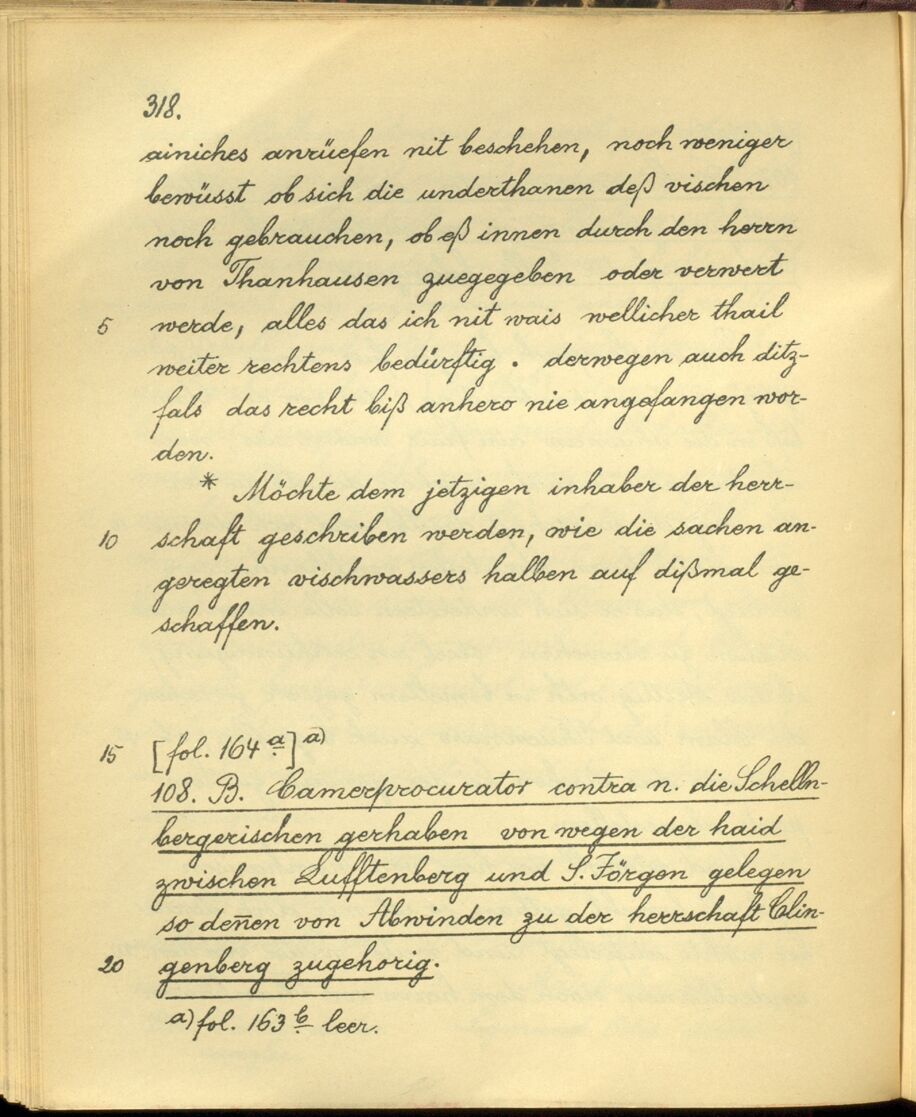 318.
ainiches anrüefen nit beschehen, noch weniger
bewüsst ob sich die underthanen deß vischen
noch gebrauchen, ob eß innen durch den herrn
von Thanhausen zuegegeben oder verwert
5 werde, alles das ich nit wais wellicher thail
weiter rechtens bedürftig. derwegen auch ditz-
fals das recht biß anhero nie angefangen wor-
den.
* Möchte dem jetzigen inhaber der herr-
10 schaft geschriben werden, wie die sachen an-
geregten vischwassers halben auf dißmal ge-
schaffen.
15 [fol. 164 a]a)
108. B. Camerprocurator contra n. die Schelln-
bergerischen gerhaben von wegen der haid
zwischen Lufftenberg und S. Jörgen gelegen
so deñen von Abwinden zu der herrschaft Clin-
20 genberg zugehorig.
a) fol. 163 b leer.